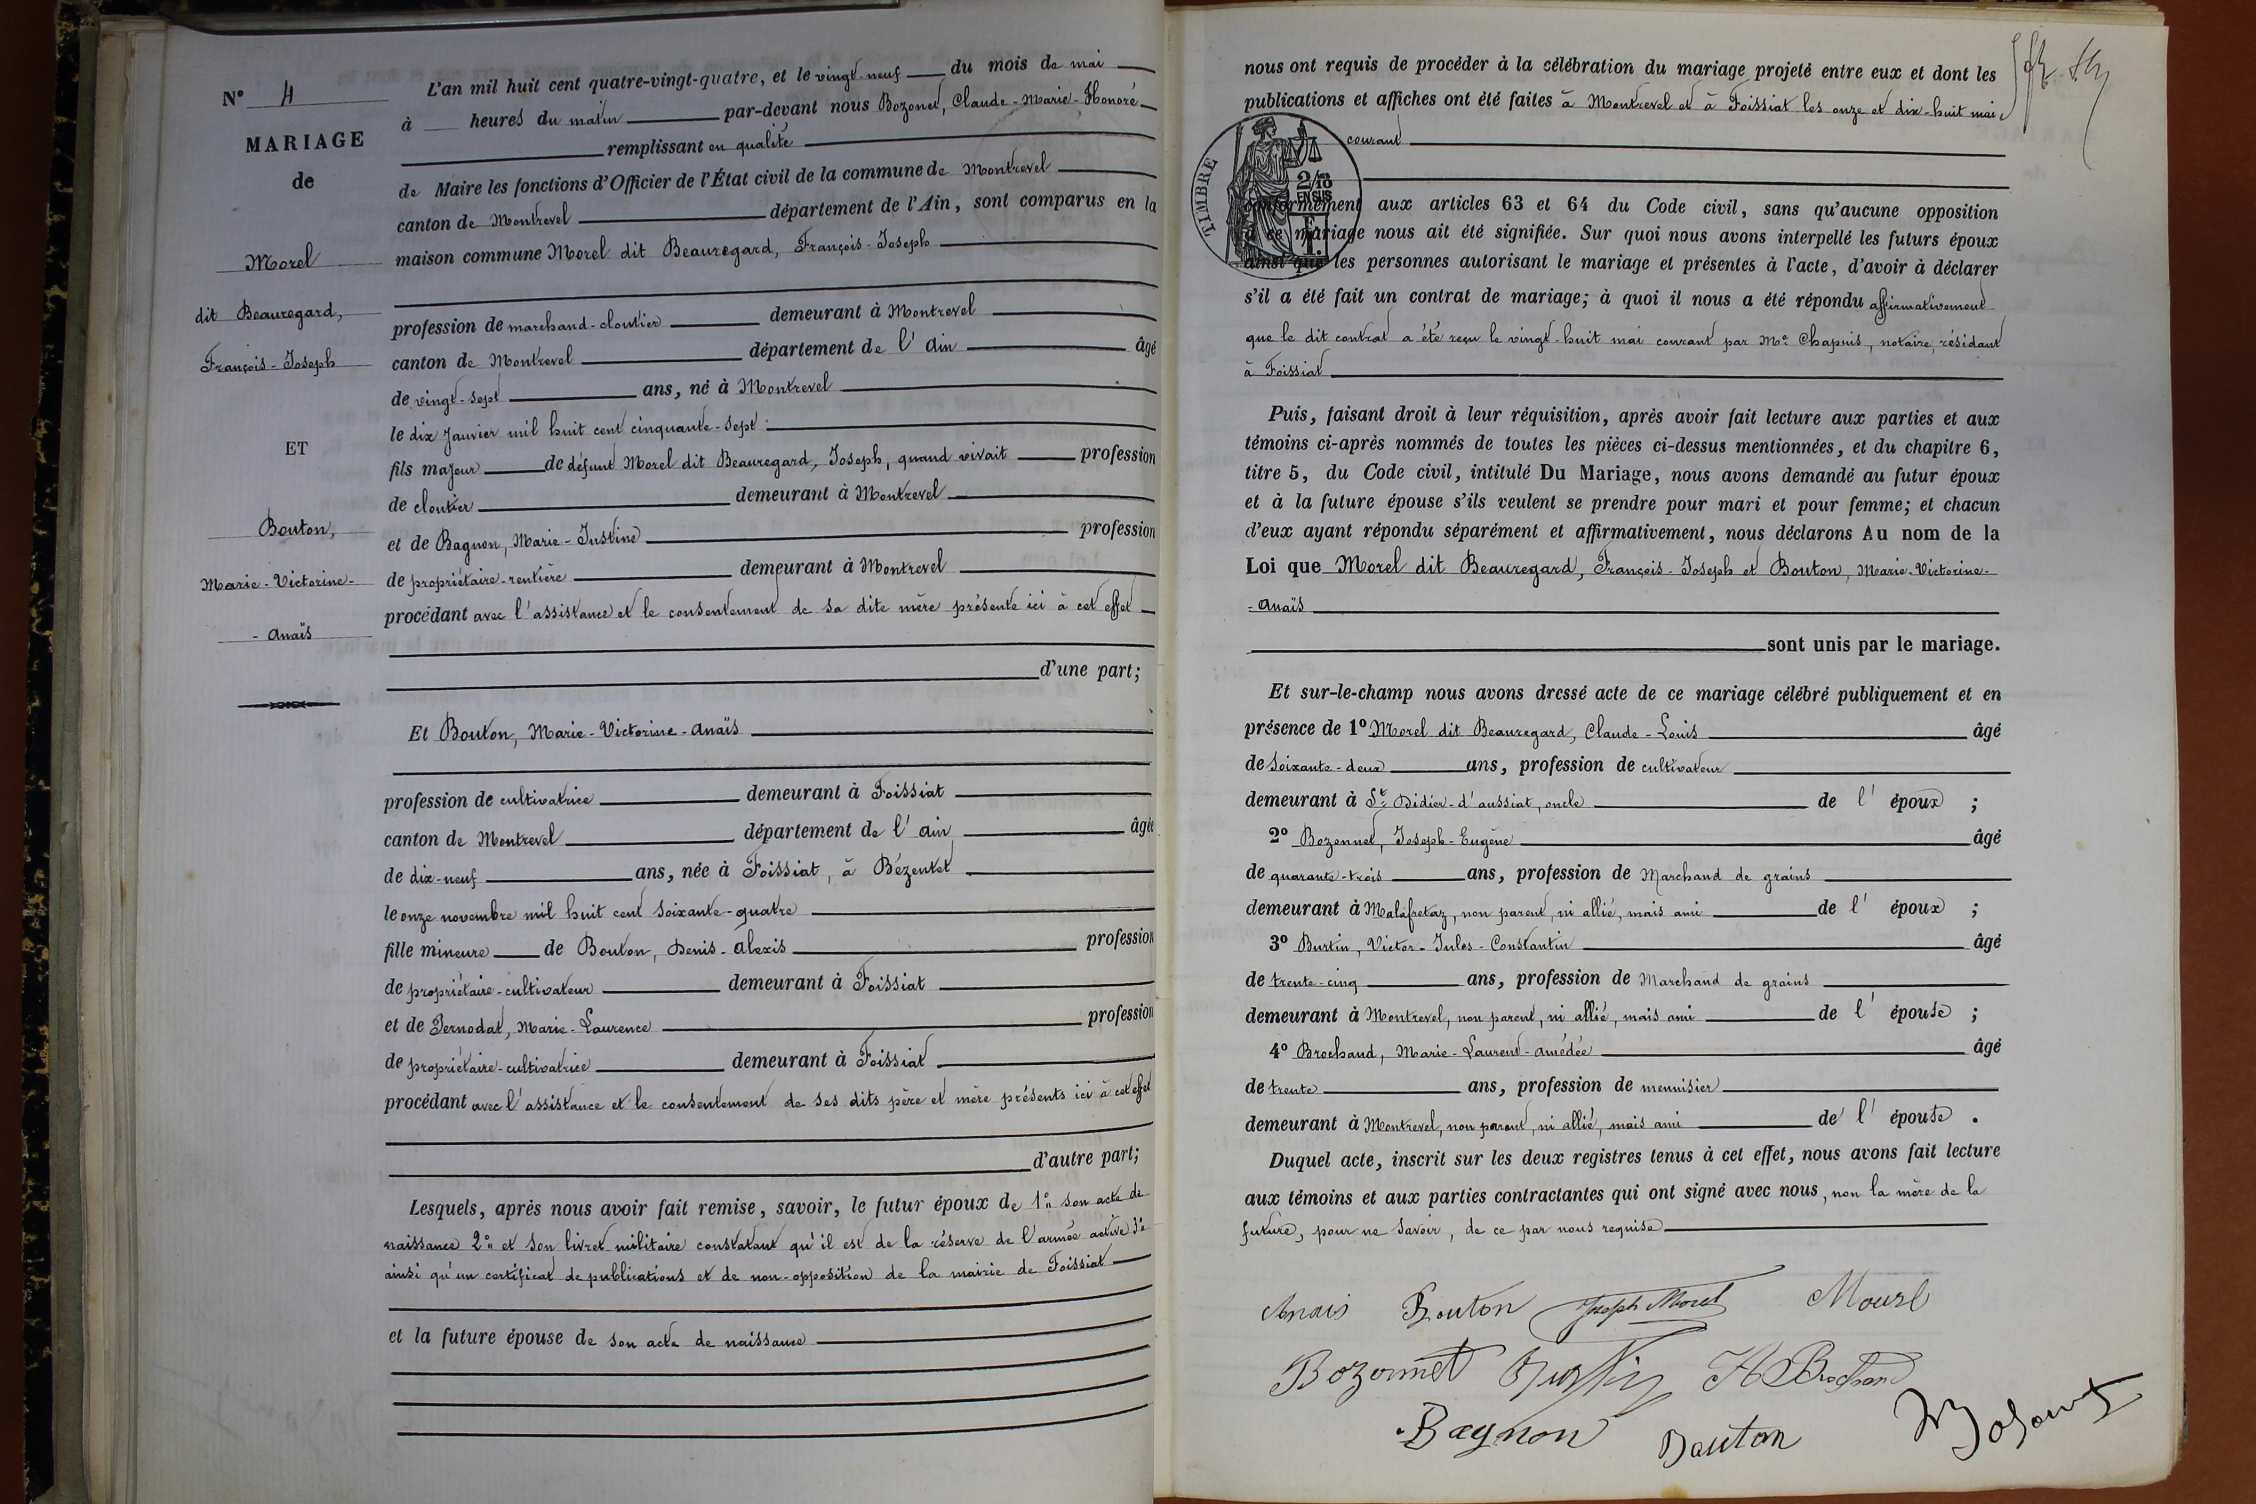 N° 4
MARIAGE
de
Morel
dit Beauregard,
François-Joseph
ET
Bouton,
Marie-Victorine-
-Anaïs
L'an mil huit cent quatre-vingt-quatre, et le vingt-neuf du mois de mai
à heures du matin par-devant nous Bozonet, Claude-Marie-Honoré
remplissant en qualité
de Maire les fonctions d'Officier de l'État civil de la commune de Montrevel
canton de Montrevel département de l'Ain, sont comparus en la
maison commune Morel dit Beauregard, François-Joseph
profession de marchand-cloutier demeurant à Montrevel
canton de Montrevel département de l'ain âgé
de vingt-sept ans, né à Montrevel
le dix Janvier mil huit cent cinquante-sept
fils majeur de défunt Morel dit Beauregard, Joseph, quand vivait profession
de cloutier demeurant à Montrevel
et de Bagnon, Marie-Justine profession
de propriétaire-rentière demeurant à Montrevel
procédant avec l'assistance et le consentement de sa dite mère présente ici à cet effet
d'une part;
Et Bouton, Marie-Victorine-Anaïs
profession de cultivatrice demeurant à Foissiat
canton de Montrevel département de l'ain âgée
de dix-neuf ans, née à Foissiat, à Bézentet
le onze novembre mil huit cent soixante-quatre
fille mineure de Bouton, Denis-Alexis profession
de propriétaire-cultivateur demeurant à Foissiat
et de Pernodat, Marie-Laurence profession
de propriétaire-cultivatrice demeurant à Foissiat
procédant avec l'assistance et le consentement de ses dits père et mère présents ici à cet effet
d'autre part;
Lesquels, après nous avoir fait remise, savoir, le futur époux de 1° son acte de
naissance 2° et son livret militaire constatant qu'il est de la réserve de l'armée active 3°
ainsi qu'un certificat de publications et de non-opposition de la mairie de Foissiat
et la future épouse de son acte de naissance
nous ont requis de procéder à la célébration du mariage projeté entre eux et dont les
publications et affiches ont été faites à Montrevel et à Foissiat les onze et dix-huit mai
courant
TIMBRE
2/10
EN SUS
conformément aux articles 63 et 64 du Code civil, sans qu'aucune opposition
à ce mariage nous ait été signifiée. Sur quoi nous avons interpellé les futurs époux
ainsi que les personnes autorisant le mariage et présentes à l'acte, d'avoir à déclarer
s'il a été fait un contrat de mariage; à quoi il nous a été répondu affirmativement
que le dit contrat a été reçu le vingt-huit mai courant par Me Chapuis, notaire, résidant
à Foissiat
Puis, faisant droit à leur réquisition, après avoir fait lecture aux parties et aux
témoins ci-après nommés de toutes les pièces ci-dessus mentionnées, et du chapitre 6,
titre 5, du Code civil, intitulé Du Mariage, nous avons demandé au futur époux
et à la future épouse s'ils veulent se prendre pour mari et pour femme; et chacun
d'eux ayant répondu séparément et affirmativement, nous déclarons Au nom de la
Loi que Morel dit Beauregard, François-Joseph et Bouton, Marie-Victorine-
-Anaïs
sont unis par le mariage.
Et sur-le-champ nous avons dressé acte de ce mariage célébré publiquement et en
présence de 1° Morel dit Beauregard, Claude-Louis âgé
de soixante-deux ans, profession de cultivateur
demeurant à St Didier-d'aussiat, oncle de l'époux ;
2° Bozonnet, Joseph-Eugène âgé
de quarante-trois ans, profession de Marchand de grains
demeurant à Malafretaz, non parent, ni allié, mais ami de l'époux ;
3° Burtin, Victor-Jules-Constantin âgé
de trente-cinq ans, profession de Marchand de grains
demeurant à Montrevel, non parent, ni allié, mais ami de l'épouse ;
4° Brochand, Marie-Laurent-Amédée âgé
de trente ans, profession de menuisier
demeurant à Montrevel, non parent, ni allié, mais ami de l'épouse .
Duquel acte, inscrit sur les deux registres tenus à cet effet, nous avons fait lecture
aux témoins et aux parties contractantes qui ont signé avec nous, non la mère de la
future, pour ne savoir, de ce par nous requise
Anais Bouton Joseph Morel Mourl
Bozonnet Burtin A Brochand
Bagnon Bouton Bozonet